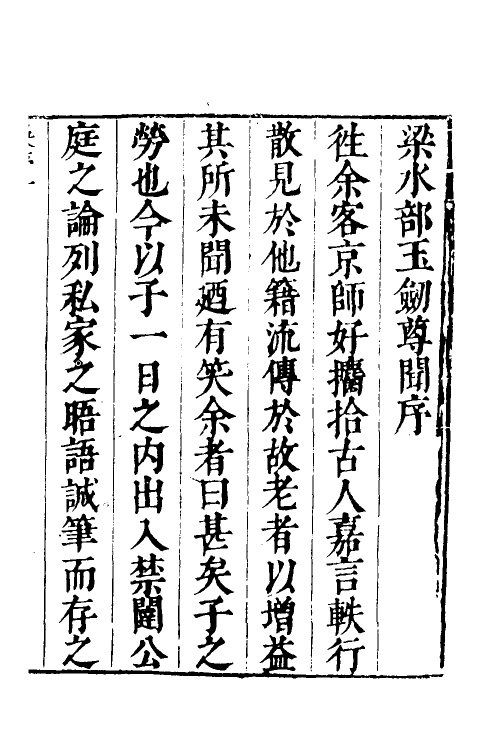 梁水部玉劒尊聞序
徃余客京師好攟拾古人嘉言軼行
散見於他籍流傳於故老者以增益
其所未聞廼有笑余者曰甚矣子之
勞也今以子一日之内出入禁闥公
庭之論列私家之晤語誠筆而存之